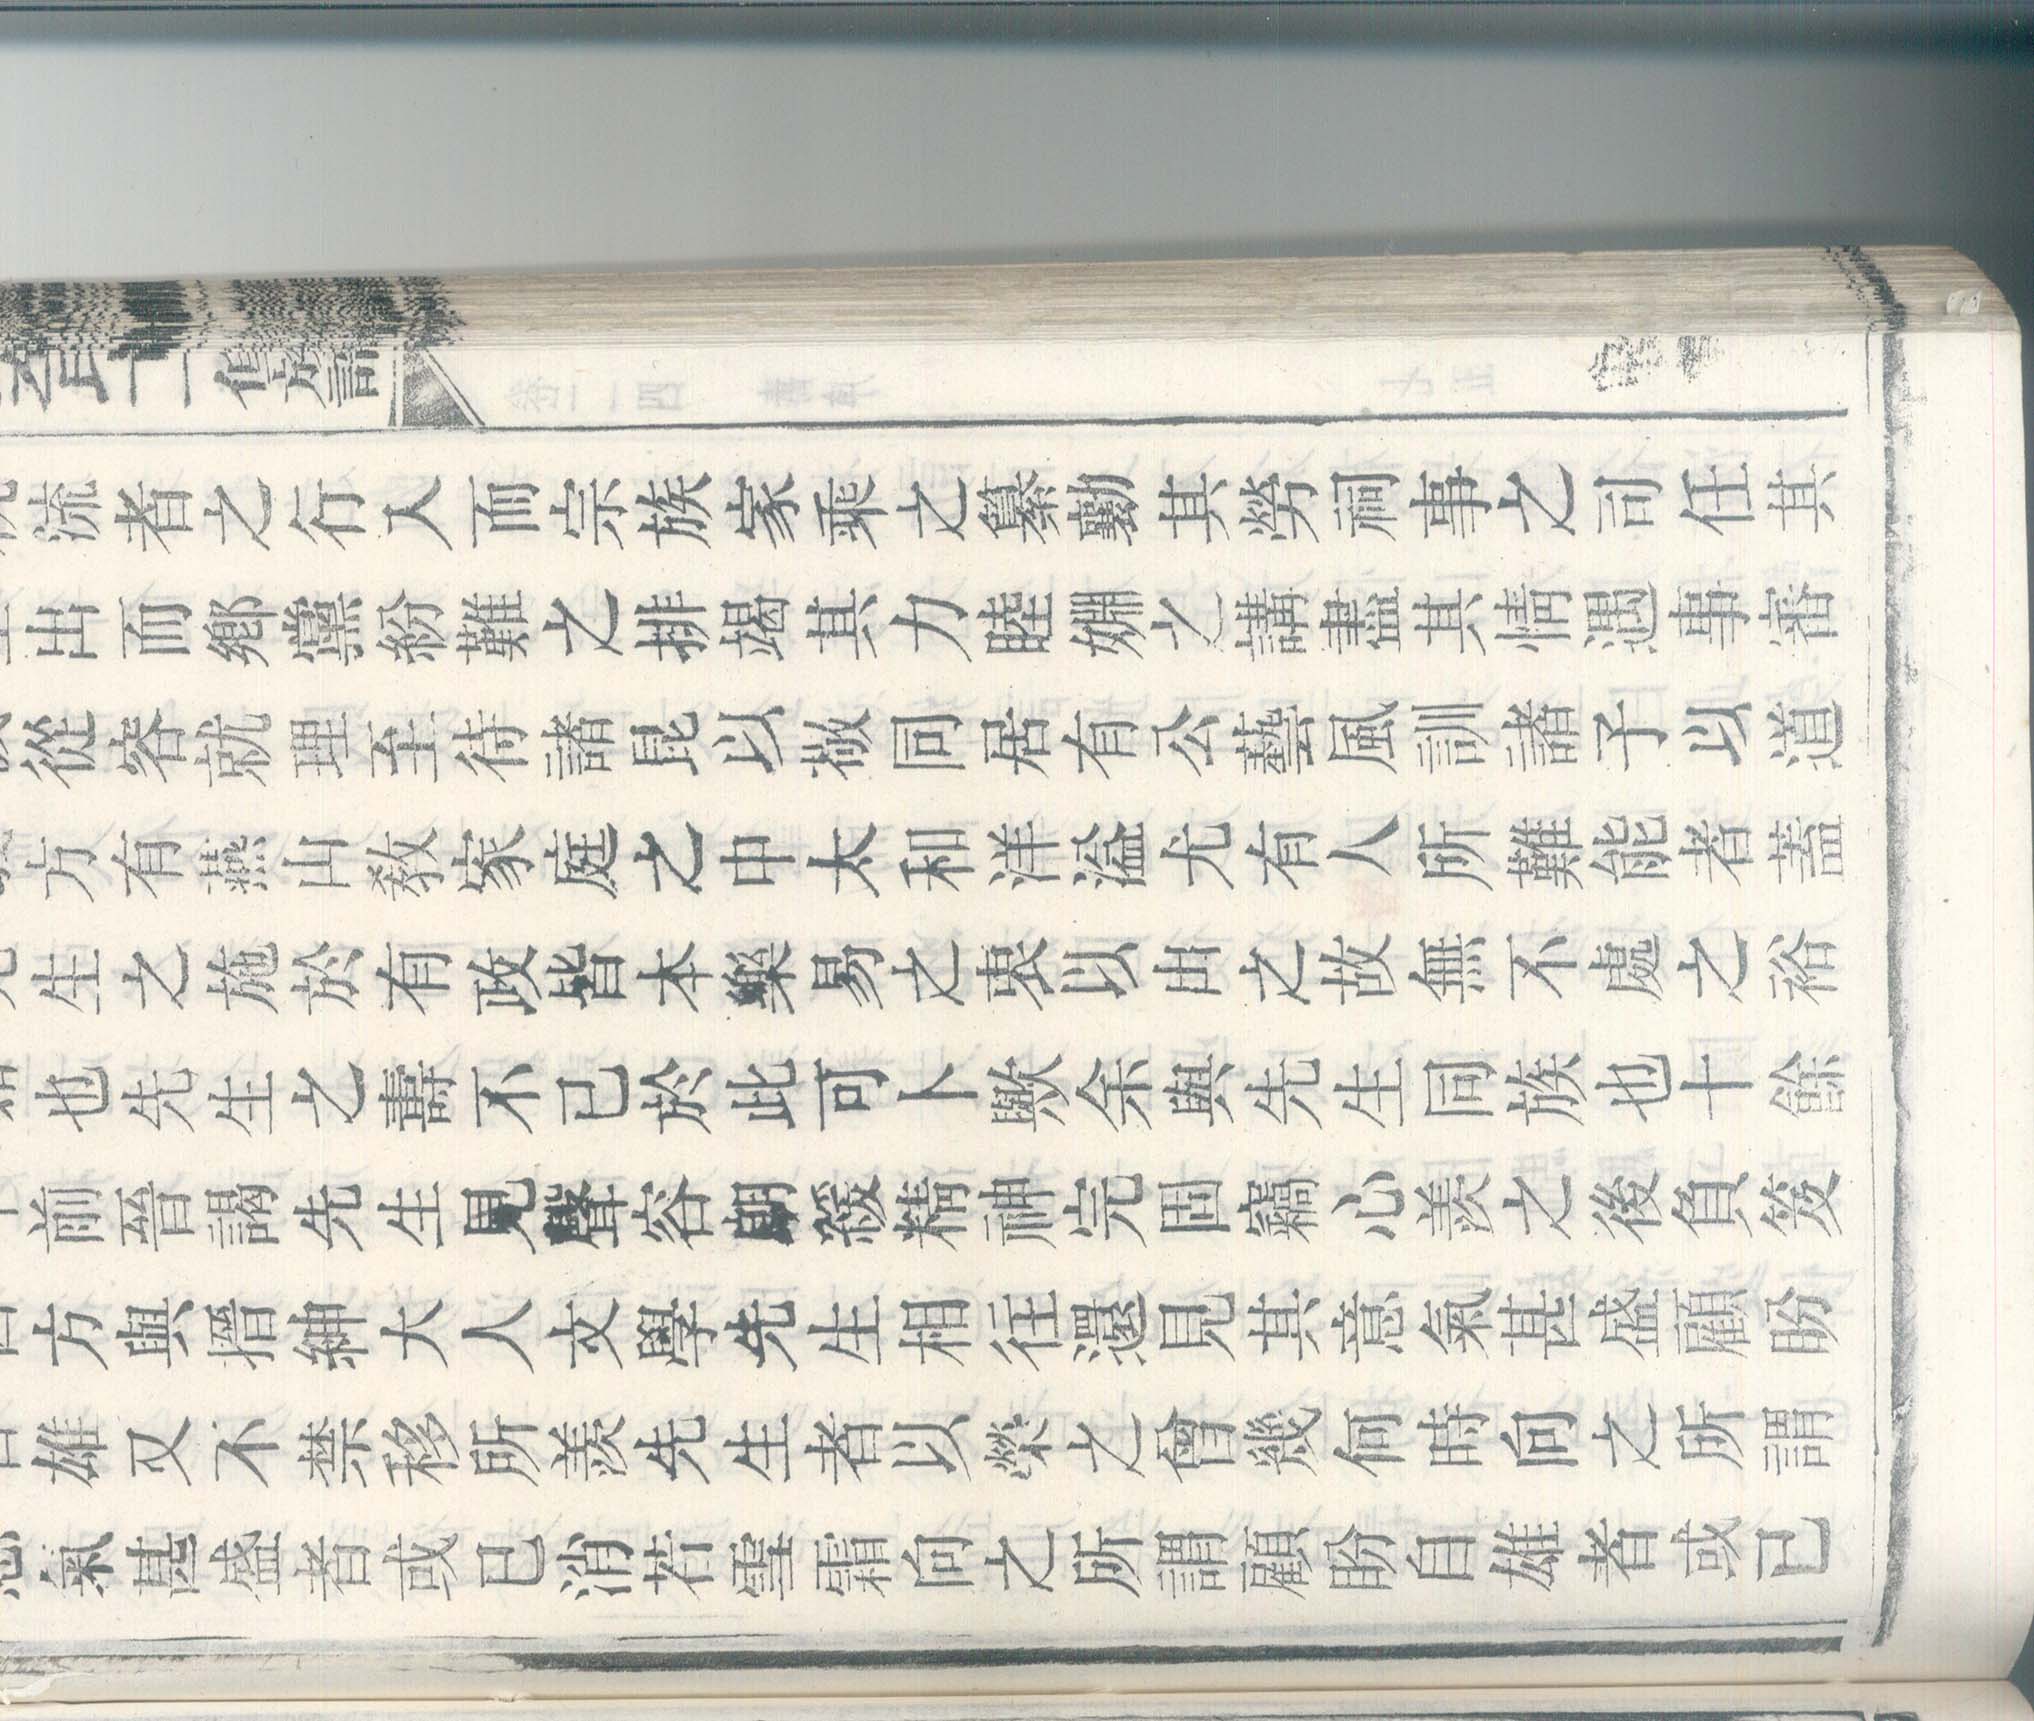 流者之行入而宗族家乘之纂勷其勞祠事之司任其
出而鄉黨紛難之排竭其力睦婣之講盡其情遇事審
從容就理至待諸昆以敬同居有公藝風訓諸子以道
方有燕山教家庭之中太和洋溢尤有人所難能者蓋
生之施於有政皆本樂易之衷以由之故無不處之裕
也先生之壽不已於此可卜歟余與先生同族也十餘
前晉謁先生見聲容朗緩精神完固竊心羨之後負笈
方與搢紳大人文學先生相往還見其意氣甚盛顧盼
雄又不禁移所羨先生者以榮之曾幾何時向之所謂
氣甚盛者或已消若雪霜向之所謂顧盼自雄者或已